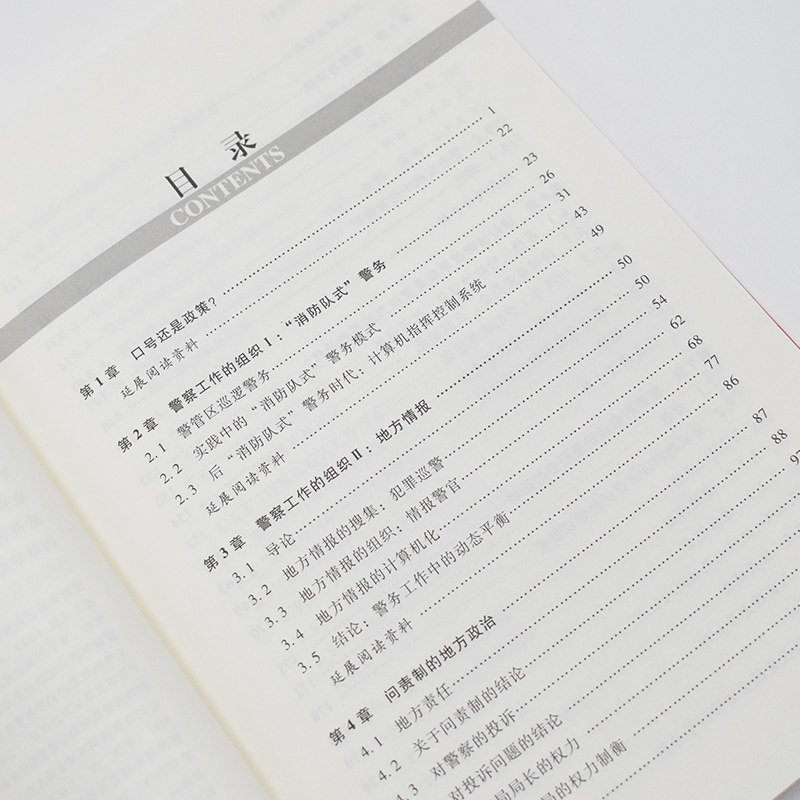 目 录
CONTENTS
第1章 口号还是政策? 1
延展阅读资料 22
第2章 警察工作的组织Ⅰ:“消防队式”警务 23
2.1 警管区巡逻警务 26
2.2 实践中的“消防队式”警务模式 31
2.3 后“消防队式”警务时代:计算机指挥控制系统 43
延展阅读资料 49
第3章 警察工作的组织Ⅱ:地方情报 50
3.1 导论 50
3.2 地方情报的搜集:犯罪巡警 54
3.3 地方情报的组织:情报警官 62
3.4 地方情报的计算机化 68
3.5 结论:警务工作中的动态平衡 77
延展阅读资料 86
第4章 问责制的地方政治 87
4.1 地方责任 88
4.2 关于问责制的结论 97
4.3 对警察的投诉
4.4 对投诉问题的结论
局长的权力
局的权力制衡